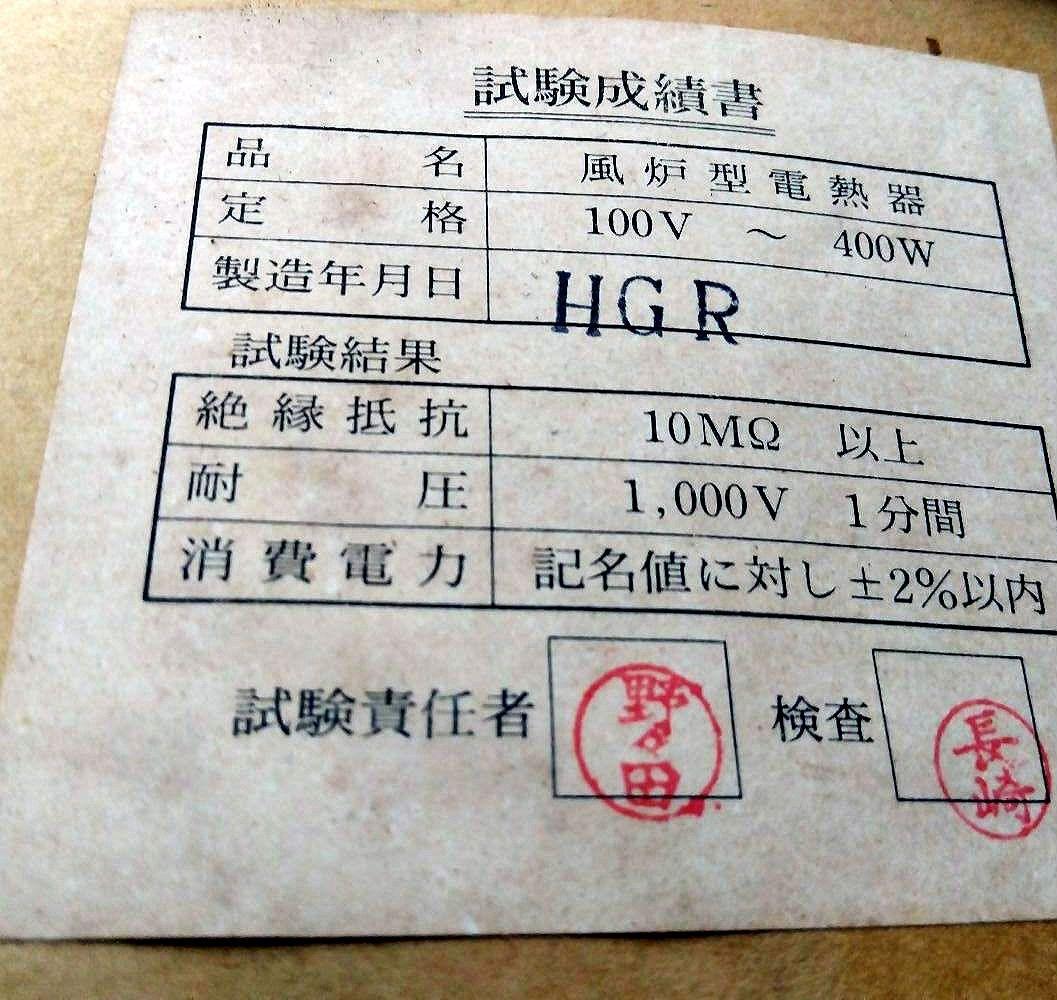 試験成績書
品名 風炉型電熱器
定格 100V ～ 400W
製造年月日 HGR
試験結果
絶縁抵抗 10MΩ 以上
耐圧 1,000V 1分間
消費電力 記名値に対し±2%以内
試験責任者 野々田 検査 長崎